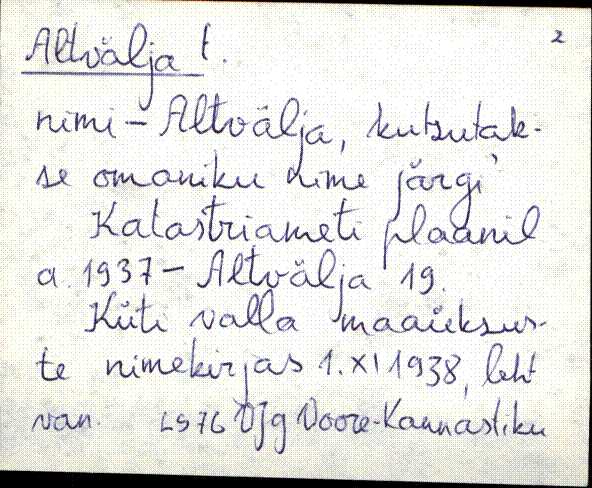 Altvälja t. 2
nimi – Altvälja, kutsutak-
se omaniku nime järgi
Katastriameti plaanil
a. 1937 – Altvälja 19.
Küti valla maaüksus-
te nimekirjas 1. XI 1938, leht
van. 1976 VJg Voore-Kannastiku